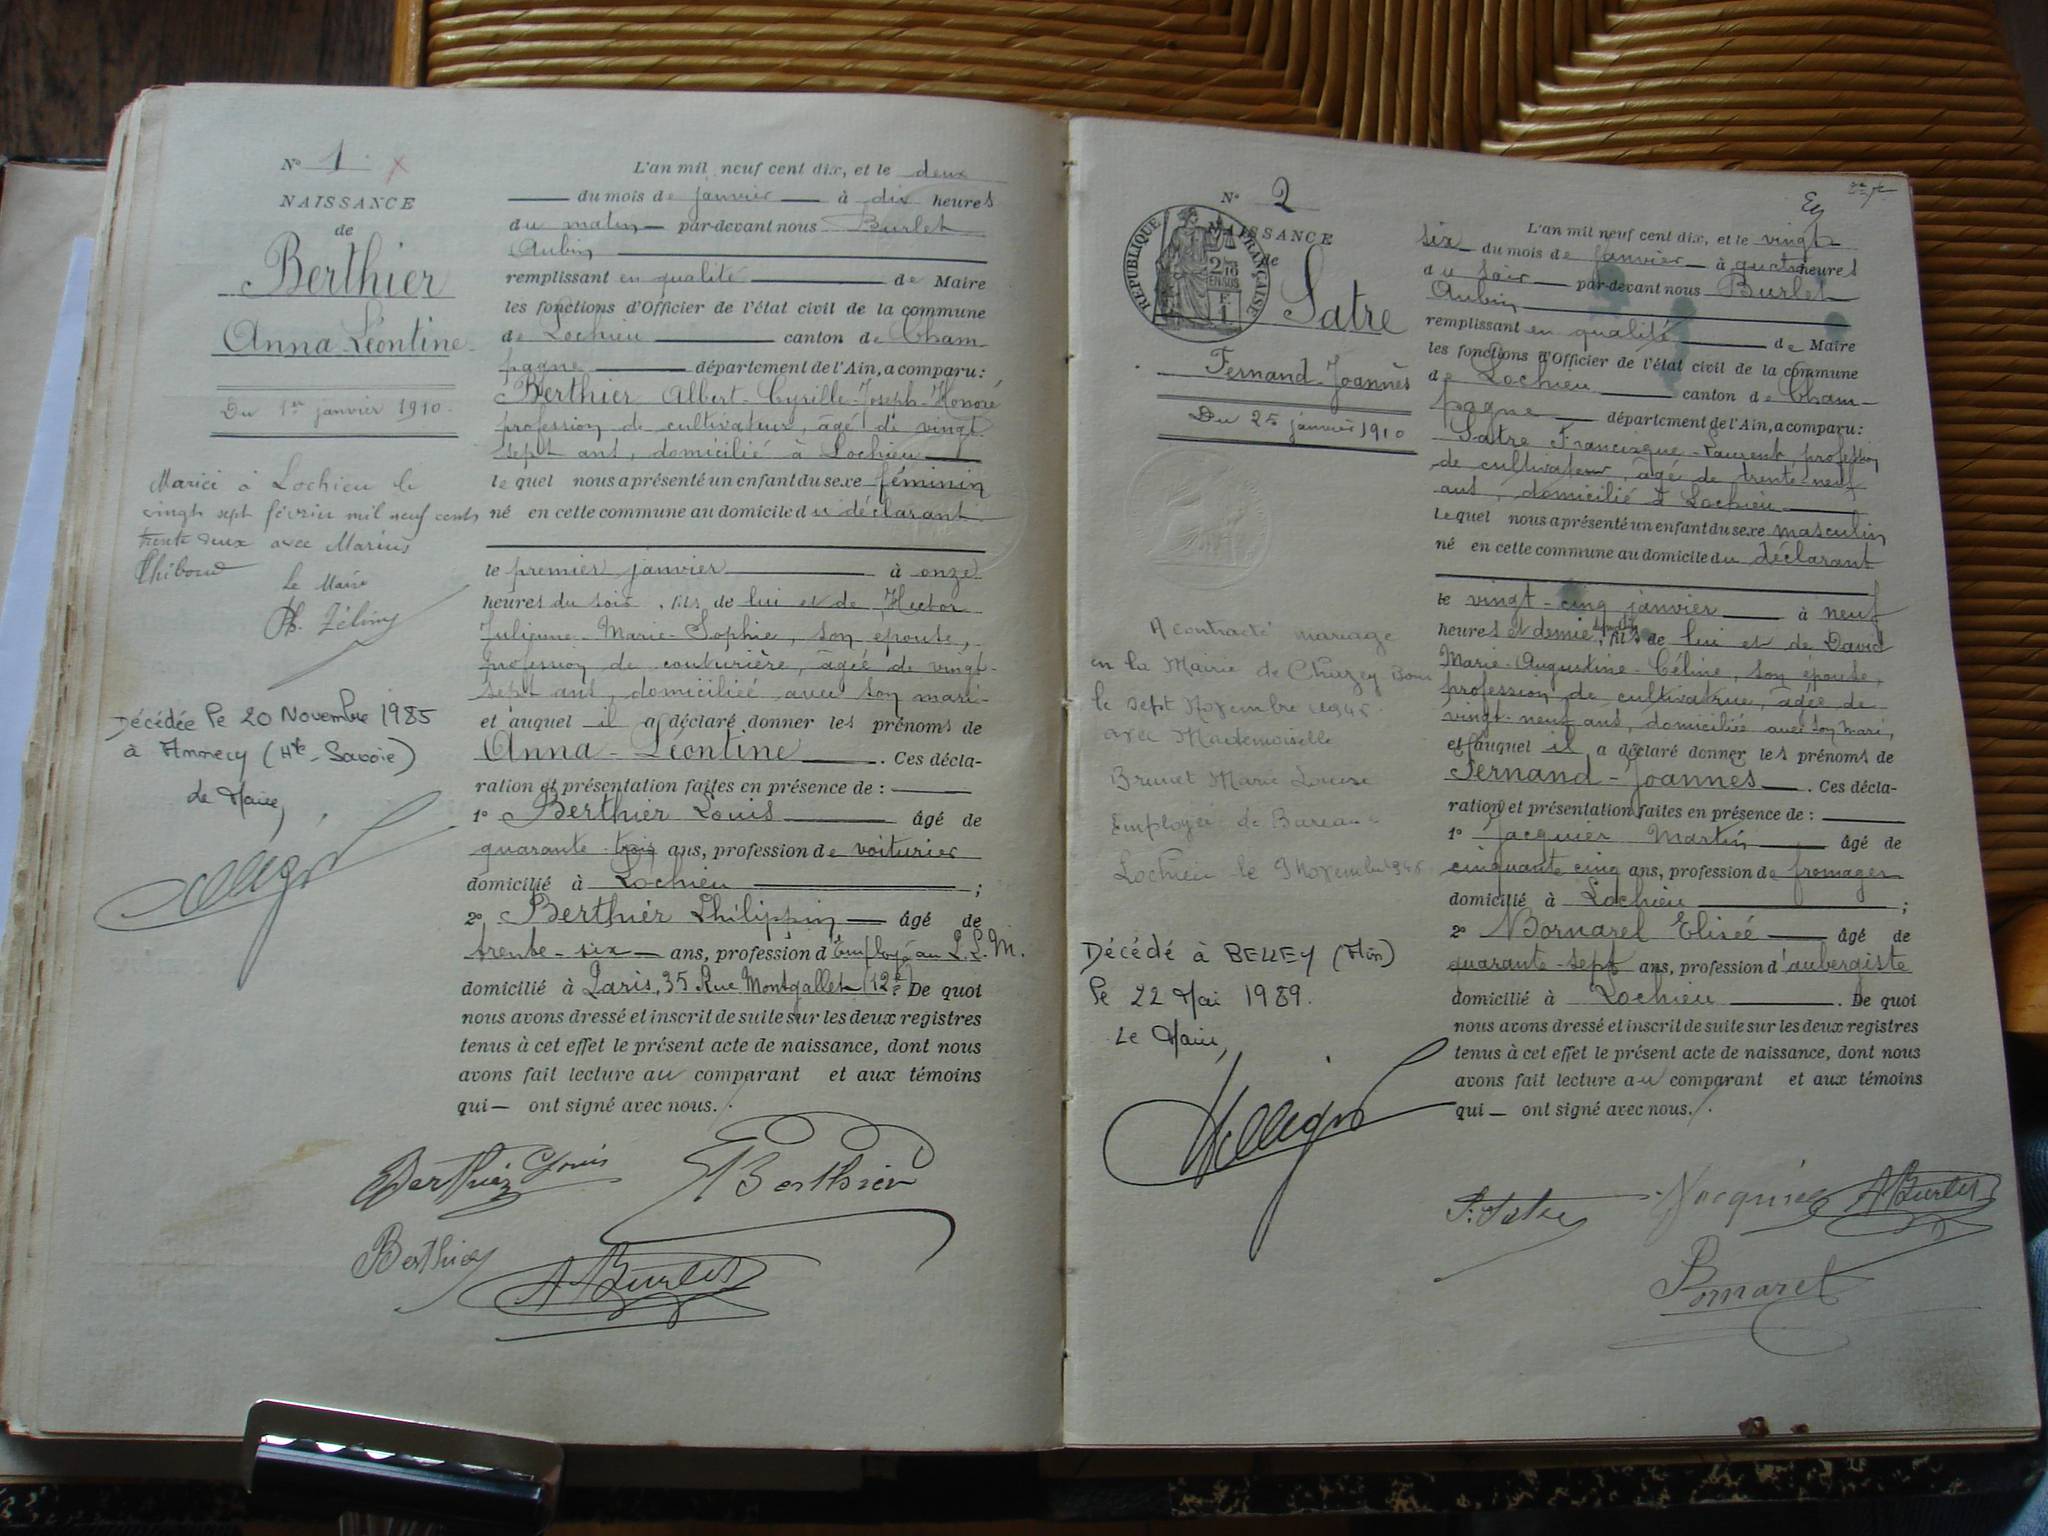 N° 1
NAISSANCE
de
Berthier
Anna Léontine
Du 1er janvier 1910
Mariée à Lochieu le
vingt sept février mil neuf cent
trente deux avec Marius
Thiboud
Le Maire
Décédée le 20 Novembre 1985
à Annecy (Hte-Savoie)
Le Maire,
L'an mil neuf cent dix, et le deux
du mois de janvier à dix heures
du matin par-devant nous Burlet
Aubin
remplissant en qualité de Maire
les fonctions d'Officier de l'état civil de la commune
de Lochieu canton de Cham-
pagne département de l'Ain, a comparu :
Berthier Albert-Cyrille-Joseph-Honoré
profession de cultivateur, âgé de vingt
sept ans, domicilié à Lochieu
lequel nous a présenté un enfant du sexe féminin
né en cette commune au domicile du déclarant
le premier janvier à onze
heures du soir, fils de lui et de Hector
Julienne-Marie-Sophie, son épouse,
profession de couturière, âgée de vingt-
sept ans, domiciliée avec son mari-
et auquel il a déclaré donner les prénoms de
Anna-Léontine. Ces décla-
ration et présentation faites en présence de :
1° Berthier Louis âgé de
quarante-trois ans, profession de voiturier
domicilié à Lochieu ;
2° Berthier Philippin âgé de
trente-six ans, profession d'Employé au P.L.M.
domicilié à Paris, 35 Rue Montgallet (12e). De quoi
nous avons dressé et inscrit de suite sur les deux registres
tenus à cet effet le présent acte de naissance, dont nous
avons fait lecture au comparant et aux témoins
qui ont signé avec nous.
Berthier Louis
Berthier
Berthier
A Burlet
N° 2
NAISSANCE
de
REPUBLIQUE FRANÇAISE
Satre
Fernand-Joannès
Du 25 janvier 1910
A contracté mariage
en la Mairie de Chazey Bons
le sept Novembre 1945
avec Mademoiselle
Brunet Marie Louise
Employée de Bureau
Lochieu le 9 Novembre 1945
Décédé à BELLEY (Ain)
le 22 Mai 1989.
Le Maire,
L'an mil neuf cent dix, et le vingt
six du mois de janvier à quatre heures
du soir par-devant nous Burlet
Aubin
remplissant en qualité de Maire
les fonctions d'Officier de l'état civil de la commune
de Lochieu canton de Cham-
pagne département de l'Ain, a comparu :
Satre Francisque-Laurent, profession
de cultivateur, âgé de trente-neuf
ans, domicilié à Lochieu
lequel nous a présenté un enfant du sexe masculin
né en cette commune au domicile du déclarant
le vingt-cinq janvier à neuf
heures et demie, fils de lui et de David
Marie-Augustine-Céline, son épouse,
profession de cultivatrice, âgée de
vingt-neuf ans, domicilié avec son mari,
et auquel il a déclaré donner les prénoms de
Fernand-Joannès. Ces décla-
ration et présentation faites en présence de :
1° Jacquier Martin âgé de
cinquante cinq ans, profession de fromager
domicilié à Lochieu ;
2° Bornarel Elisée âgé de
quarante-sept ans, profession d'aubergiste
domicilié à Lochieu. De quoi
nous avons dressé et inscrit de suite sur les deux registres
tenus à cet effet le présent acte de naissance, dont nous
avons fait lecture au comparant et aux témoins
qui ont signé avec nous.
F. Satre
Jacquier
A Burlet
Bornarel